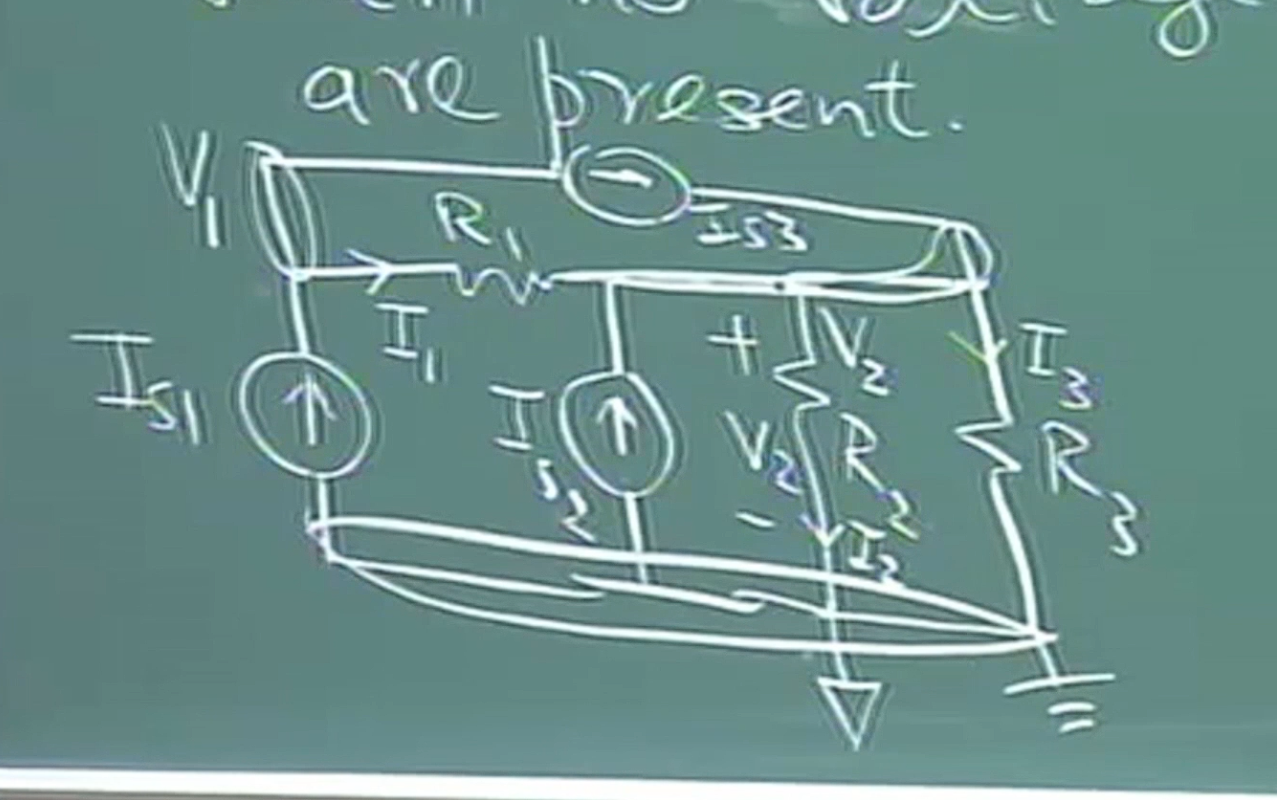 are present.
V1
R1
IS3
I1
IS1
IS2
+
V2
V2
R2
-
I2
I3
R3